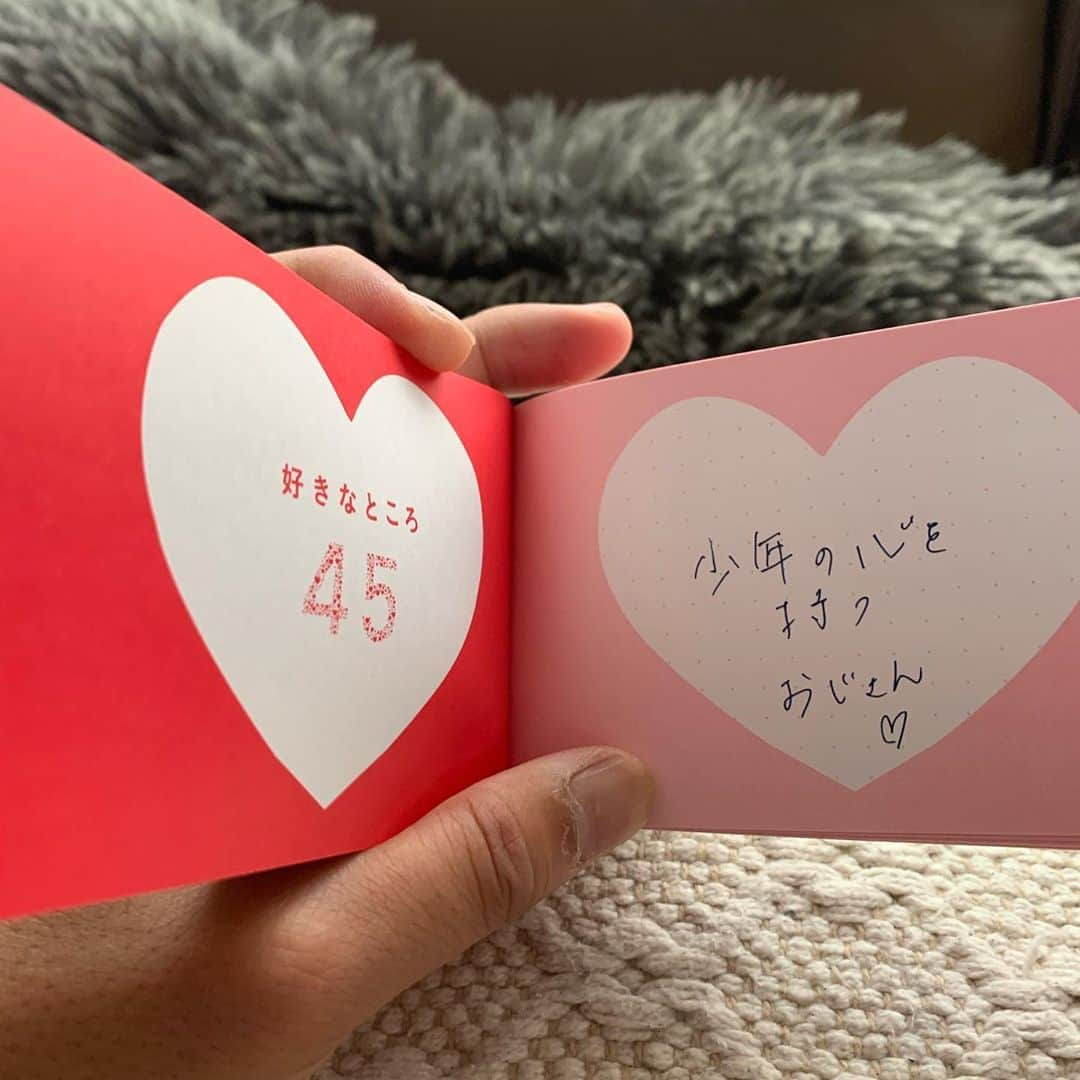 好きなところ
45
少年の心を
持つ
おじさん
♡